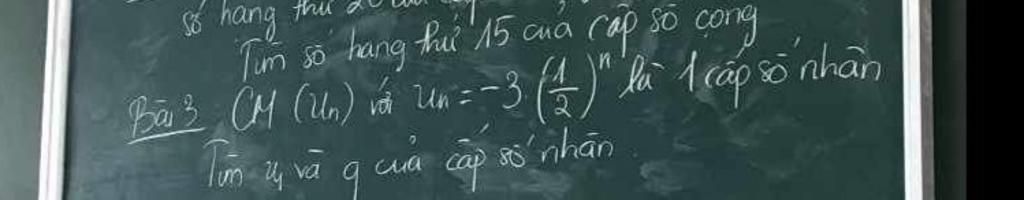 số hạng thứ 20 của
Tìm số hạng thứ 15 của cấp số cộng
Bài 3 CM (Un) với Un = -3 (1/2)^n là 1 cấp số nhân
Tìm u1 và q của cấp số nhân.